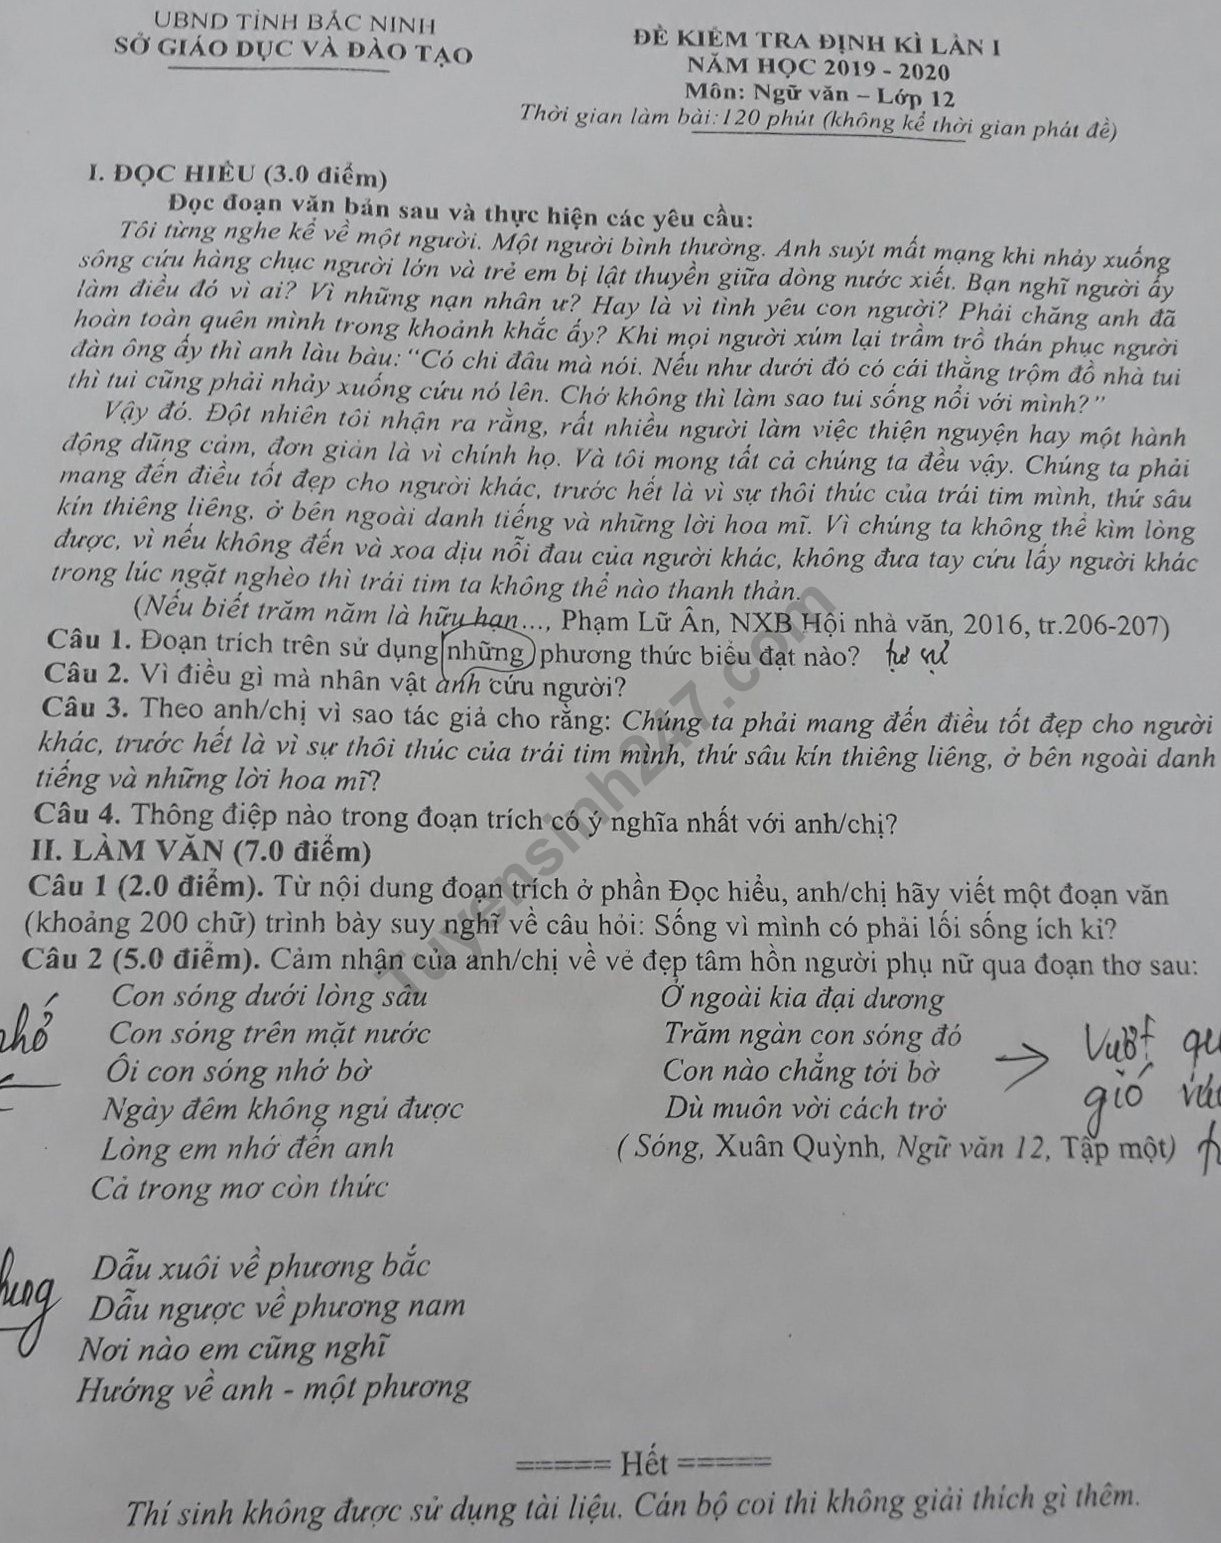 UBND TỈNH BẮC NINH
SỞ GIÁO DỤC VÀ ĐÀO TẠO
ĐỀ KIỂM TRA ĐỊNH KÌ LẦN I
NĂM HỌC 2019 - 2020
Môn: Ngữ văn – Lớp 12
Thời gian làm bài:120 phút (không kể thời gian phát đề)
I. ĐỌC HIỂU (3.0 điểm)
Đọc đoạn văn bản sau và thực hiện các yêu cầu:
Tôi từng nghe kể về một người. Một người bình thường. Anh suýt mất mạng khi nhảy xuống
sông cứu hàng chục người lớn và trẻ em bị lật thuyền giữa dòng nước xiết. Bạn nghĩ người ấy
làm điều đó vì ai? Vì những nạn nhân ư? Hay là vì tình yêu con người? Phải chăng anh đã
hoàn toàn quên mình trong khoảnh khắc ấy? Khi mọi người xúm lại trầm trồ thán phục người
đàn ông ấy thì anh làu bàu: “Có chi đâu mà nói. Nếu như dưới đó có cái thằng trộm đồ nhà tui
thì tui cũng phải nhảy xuống cứu nó lên. Chớ không thì làm sao tui sống nổi với mình?”
Vậy đó. Đột nhiên tôi nhận ra rằng, rất nhiều người làm việc thiện nguyện hay một hành
động dũng cảm, đơn giản là vì chính họ. Và tôi mong tất cả chúng ta đều vậy. Chúng ta phải
mang đến điều tốt đẹp cho người khác, trước hết là vì sự thôi thúc của trái tim mình, thứ sâu
kín thiêng liêng, ở bên ngoài danh tiếng và những lời hoa mĩ. Vì chúng ta không thể kìm lòng
được, vì nếu không đến và xoa dịu nỗi đau của người khác, không đưa tay cứu lấy người khác
trong lúc ngặt nghèo thì trái tim ta không thể nào thanh thản.
(Nếu biết trăm năm là hữu hạn..., Phạm Lữ Ân, NXB Hội nhà văn, 2016, tr.206-207)
Câu 1. Đoạn trích trên sử dụng những phương thức biểu đạt nào? tự sự
Câu 2. Vì điều gì mà nhân vật anh cứu người?
Câu 3. Theo anh/chị vì sao tác giả cho rằng: Chúng ta phải mang đến điều tốt đẹp cho người
khác, trước hết là vì sự thôi thúc của trái tim mình, thứ sâu kín thiêng liêng, ở bên ngoài danh
tiếng và những lời hoa mĩ?
Câu 4. Thông điệp nào trong đoạn trích có ý nghĩa nhất với anh/chị?
II. LÀM VĂN (7.0 điểm)
Câu 1 (2.0 điểm). Từ nội dung đoạn trích ở phần Đọc hiểu, anh/chị hãy viết một đoạn văn
(khoảng 200 chữ) trình bày suy nghĩ về câu hỏi: Sống vì mình có phải lối sống ích kỉ?
Câu 2 (5.0 điểm). Cảm nhận của anh/chị về vẻ đẹp tâm hồn người phụ nữ qua đoạn thơ sau:
Con sóng dưới lòng sâu
Con sóng trên mặt nước
Ôi con sóng nhớ bờ
Ngày đêm không ngủ được
Lòng em nhớ đến anh
Cả trong mơ còn thức
Dẫu xuôi về phương bắc
Dẫu ngược về phương nam
Nơi nào em cũng nghĩ
Hướng về anh - một phương
Ở ngoài kia đại dương
Trăm ngàn con sóng đó
Con nào chẳng tới bờ
Dù muôn vời cách trở
( Sóng, Xuân Quỳnh, Ngữ văn 12, Tập một)
nhớ
Vượt
gió
===== Hết =====
Thí sinh không được sử dụng tài liệu. Cán bộ coi thi không giải thích gì thêm.
Tuyensinh247.com